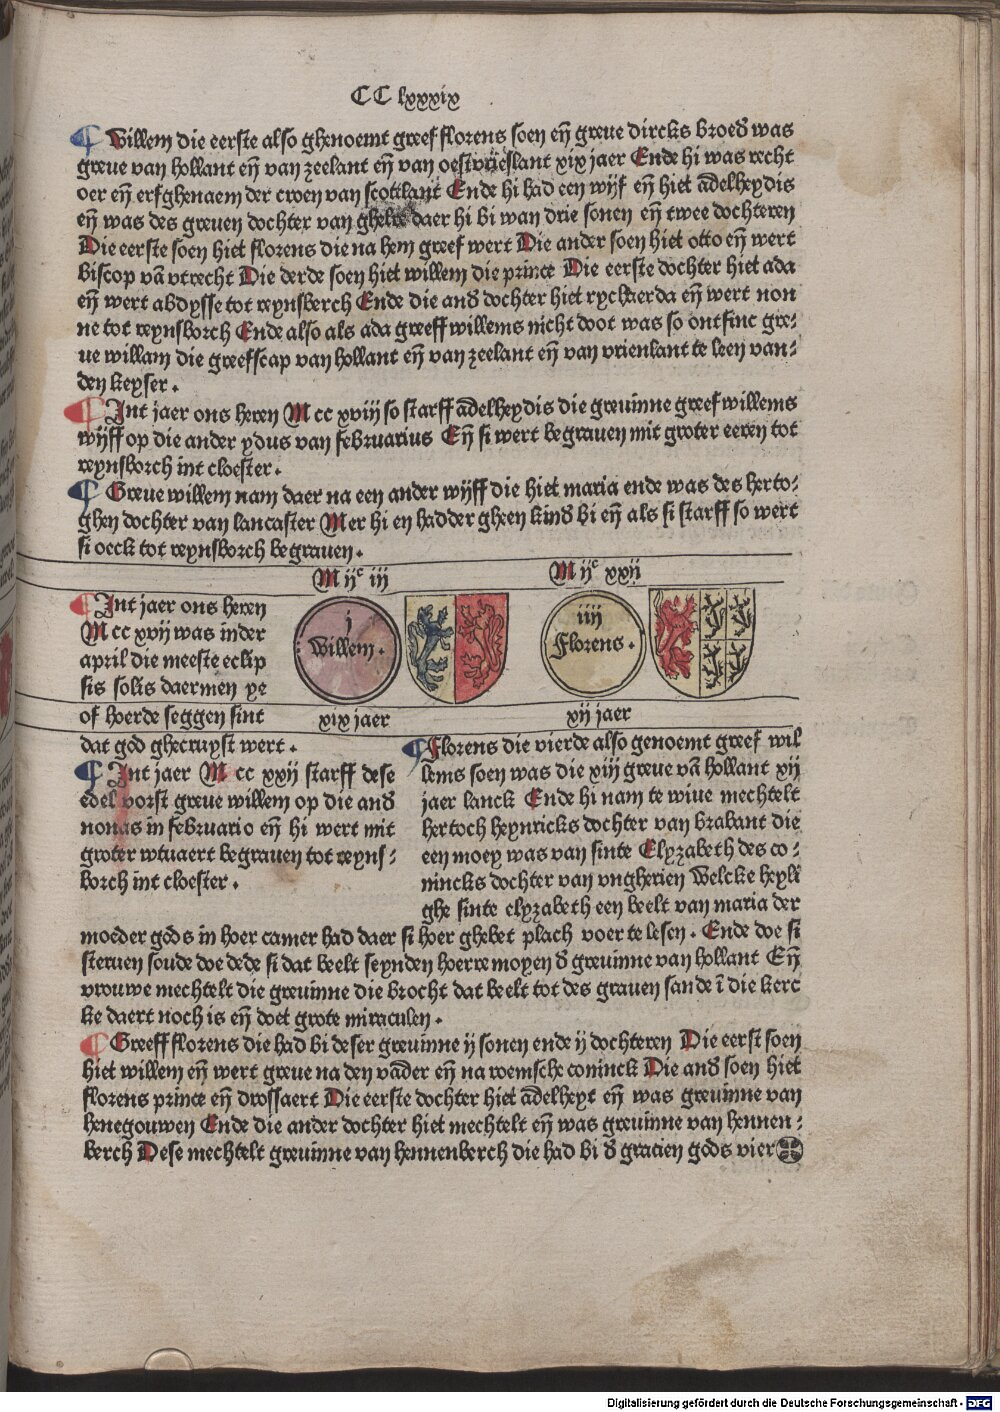 CC lxxxix
¶ Willem die eerste also ghenoemt greef florens soen eñ greue dircks broeđ was
greue van hollant eñ van zeelant eñ van oestvrieslant xix jaer Ende hi was recht
oer eñ erfghenaem der croen van scotlant Ende hi had een wijf eñ hiet adelheydis
eñ was des greuen dochter van ghelre daer hi bi wan drie sonen eñ twee dochteren
Die eerste soen hiet florens die na hem greef wert Die ander soen hiet otto eñ wert
biscop vā vtrecht Die derde soen hiet willem die prince Die eerste dochter hiet ada
eñ wert abdysse tot reynsberch Ende die anđ dochter hiet rychaerda eñ wert non
ne tot reynsborch Ende also als ada greeff willems nicht doot was so ontfinc gre⸗
ue willam die greefscap van hollant eñ van zeelant eñ van vrienlant te leen van⸗
den keyser .
¶ Int jaer ons heren M cc xviij so starff adelheydis die greuinne greef willems
wijff op die ander ydus van februarius Eñ si wert begrauen mit groter eeren tot
reynsborch int cloester .
¶ Greue willem nam daer na een ander wijff die hiet maria ende was des herto⸗
ghen dochter van lancaster Mer hi en hadder gheen kinđ bi eñ als si starff so wert
si oeck tot reynsborch begrauen .
M ijᶜ iij
M ijᶜ xxij
¶ Int jaer ons heren
M cc xvij was inder
april die meeste eclip
sis solis daermen ye
of hoerde seggen sint
dat god ghecruyst wert .
j
Willem .
xix jaer
iiij
Florens .
xij jaer
¶ Int jaer M cc xxij starff dese
edel vorst greue willem op die anđ
nonas in februario eñ hi wert mit
groter wtuaert begrauen tot reyns⸗
borch int cloester .
¶ Florens die vierde also genoemt greef wil
lems soen was die xiij greue vā hollant xij
jaer lanck Ende hi nam te wiue mechtelt
hertoch heynricks dochter van brabant die
een moey was van sinte Elyzabeth des co⸗
nincks dochter van vngherien Welcke heyli
ghe sinte elyzabeth een beelt van maria der
moeder gods in hoer camer had daer si hoer ghebet plach voer te lesen . Ende doe si
steruen soude doe dede si dat beelt seynden hoerre moyen đ greuinne van hollant Eñ
vrouwe mechtelt die greuinne die brocht dat beelt tot des grauen sande ī die kerc
ke daert noch is eñ doet grote miraculen .
¶ Greeff florens die had bi deser greuinne ij sonen ende ij dochteren Die eerst soen
hiet willem eñ wert greue na den vader eñ na roemsche coninck Die anđ soen hiet
florens prince eñ drossaert Die eerste dochter hiet adelheyt eñ was greuinne van
henegouwen Ende die ander dochter hiet mechtelt eñ was greuinne van hennen⸗
berch Dese mechtelt greuinne van hennenberch die had bi đ gracien gods vier
Digitalisierung gefördert durch die Deutsche Forschungsgemeinschaft - DFG